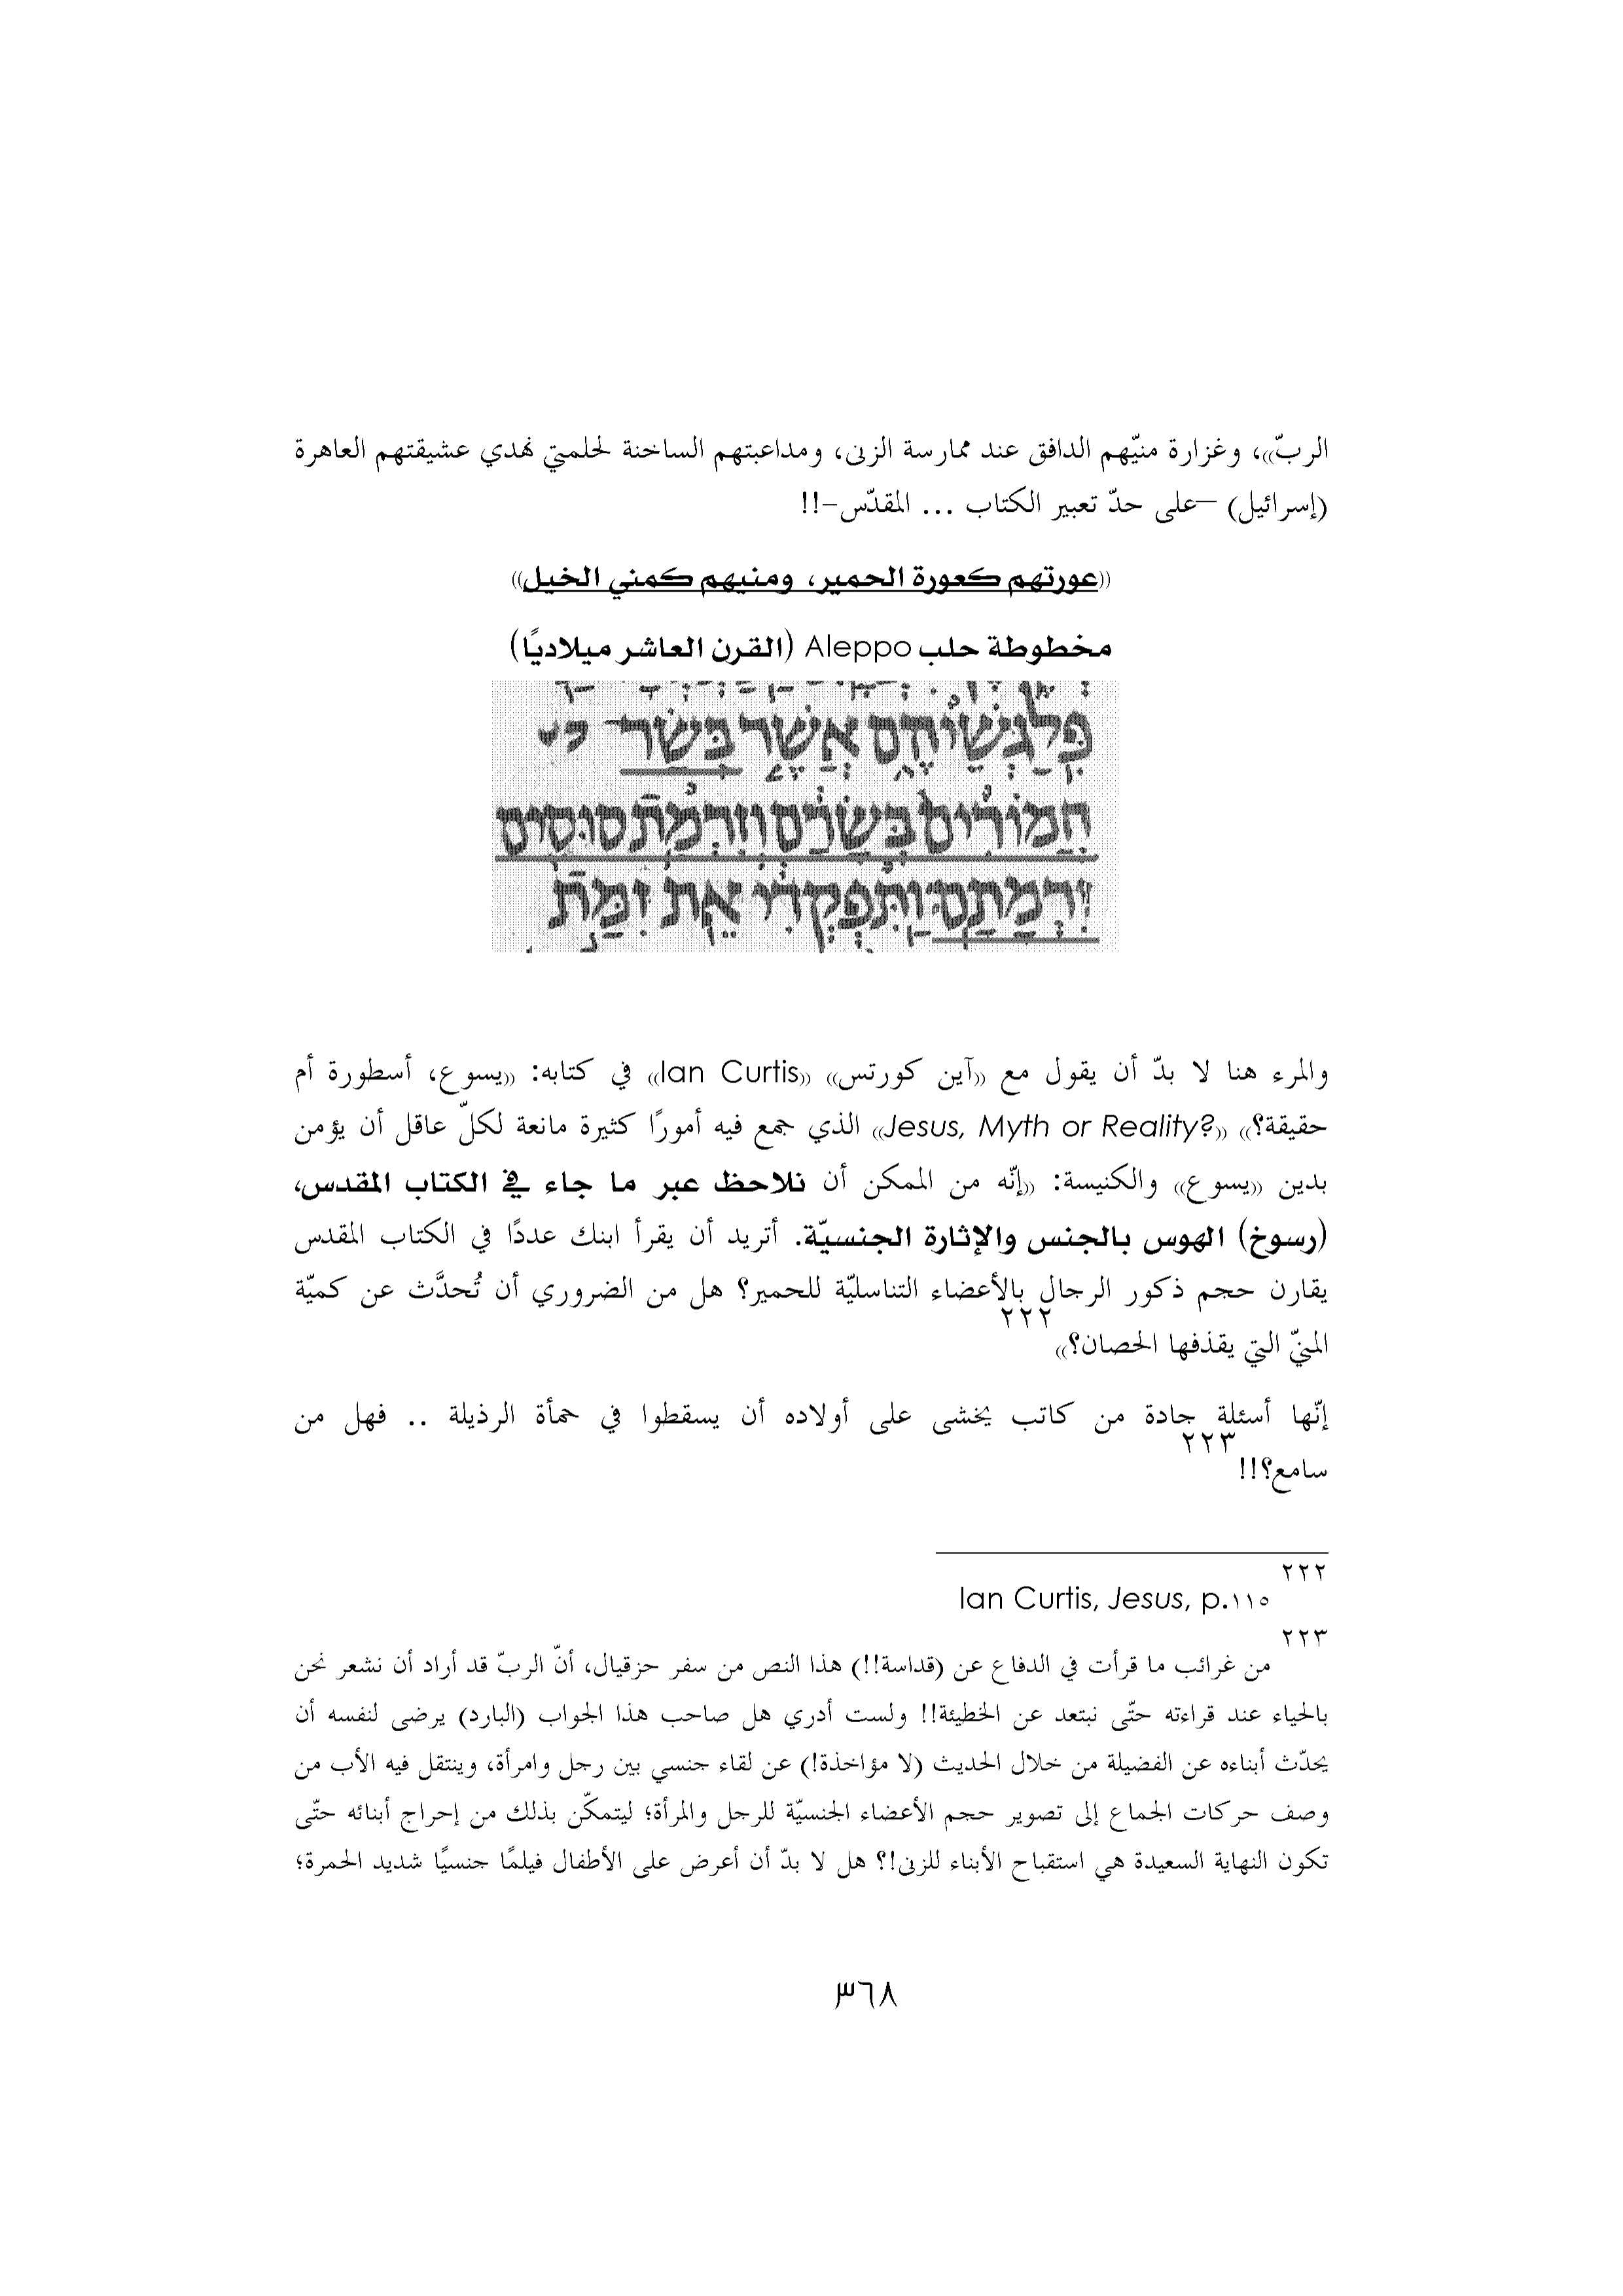 الربّ))، وغزارة منيّهم الدافق عند ممارسة الزنى، ومداعبتهم الساخنة لحلمتي نهدي عشيقتهم العاهرة
(إسرائيل) –على حدّ تعبير الكتاب ... المقدّس-!!
((عورتهم كعورة الحمير، ومنيهم كمني الخيل))
مخطوطة حلب Aleppo (القرن العاشر ميلاديًا)
פִּלַגְשֵׁיהֶם אֲשֶׁר בְּשַׂר
חֲמוֹרִים בְּשָׂרָם וְזִרְמַת סוּסִים
זִרְמָתָם: וַתִּפְקְדִי אֵת זִמַּת
والمرء هنا لا بدّ أن يقول مع ((آين كورتس)) ((Ian Curtis)) في كتابه: ((يسوع، أسطورة أم
حقيقة؟)) ((Jesus, Myth or Reality?)) الذي جمع فيه أمورًا كثيرة مانعة لكلّ عاقل أن يؤمن
بدين ((يسوع)) والكنيسة: ((إنّه من الممكن أن نلاحظ عبر ما جاء في الكتاب المقدس،
(رسوخ) الهوس بالجنس والإثارة الجنسيّة. أتريد أن يقرأ ابنك عددًا في الكتاب المقدس
يقارن حجم ذكور الرجال بالأعضاء التناسليّة للحمير؟ هل من الضروري أن تُحدَّث عن كميّة
المنيّ التي يقذفها الحصان؟))٢٢٢
إنّها أسئلة جادة من كاتب يخشى على أولاده أن يسقطوا في حمأة الرذيلة .. فهل من
سامع؟!!٢٢٣
٢٢٢ Ian Curtis, Jesus, p.١١٥
٢٢٣ من غرائب ما قرأت في الدفاع عن (قداسة!!) هذا النص من سفر حزقيال، أنّ الربّ قد أراد أن نشعر نحن
بالحياء عند قراءته حتّى نبتعد عن الخطيئة!! ولست أدري هل صاحب هذا الجواب (البارد) يرضى لنفسه أن
يحدّث أبناءه عن الفضيلة من خلال الحديث (لا مؤاخذة!) عن لقاء جنسي بين رجل وامرأة، وينتقل فيه الأب من
وصف حركات الجماع إلى تصوير حجم الأعضاء الجنسيّة للرجل والمرأة؛ ليتمكّن بذلك من إحراج أبنائه حتّى
تكون النهاية السعيدة هي استقباح الأبناء للزنى!؟ هل لا بدّ أن أعرض على الأطفال فيلمًا جنسيًا شديد الحمرة؛
٣٦٨